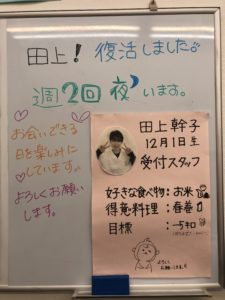 田上！復活しました♪
週2回夜います。
お会いできる
日を楽しみに
しています。
よろしくお願い
します。
田上 幹子
12月1日生
受付スタッフ
好きな食べ物：お米
得意料理：春巻
目標：
よろしく
お願いします